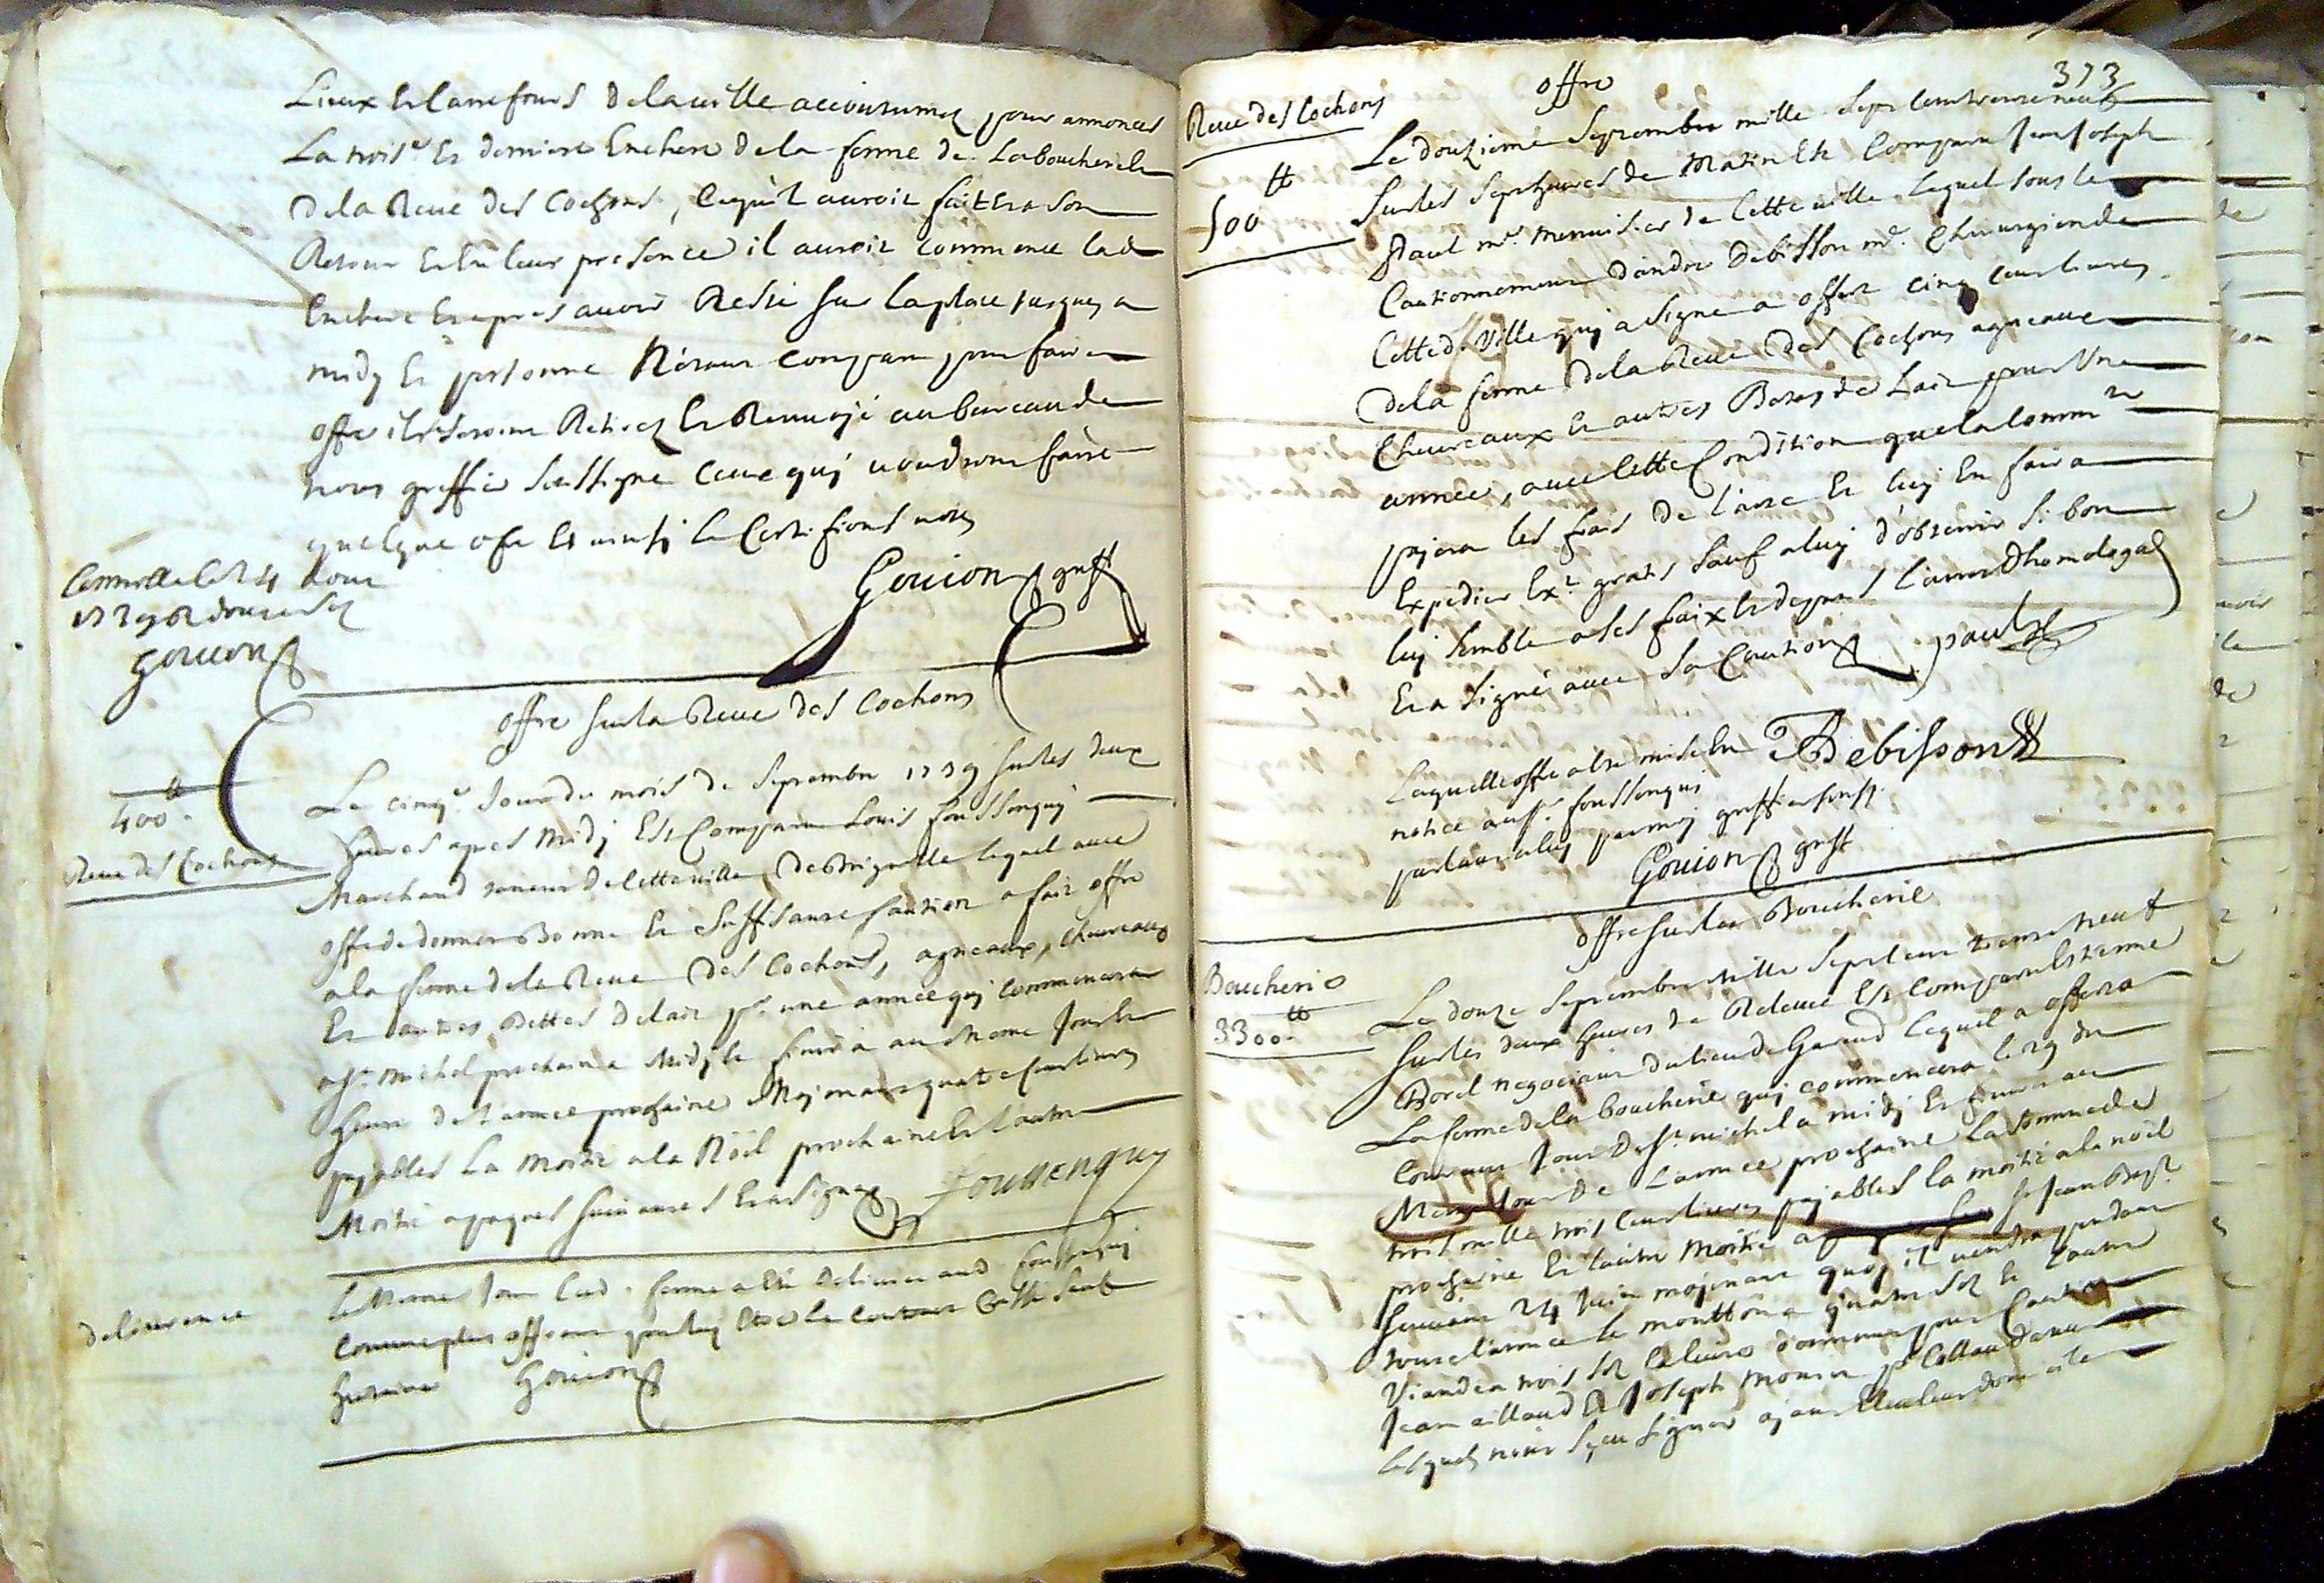 Lieux et Carrefours de la ville accoutumez pour annoncer
La trois.e et derniere Enchere de la ferme de La boucherie
de la Reue des Cochons, ce qu'il auroit fait Et a son
Retour Et En leur presence il auroit commencé lad.
Enchere Et apres avoir Resté sur la place jusques a
midy Et personne N'étant comparu pour faire
offre ils se seroint Retirez Et Renvoyé au bureau de
nous greffier soussigné ceux quj voudront faire
quelque ofre Et ainsj le Certifions nous
Goujon greff
Controllé le 14 dout
Goujon
offre sur la Reue des Cochons
400 lt.
Reue des Cochons
Le cinq.e Jour du mois de Septembre 1739 sur les deux
heures apres midj Est Comparu Louis foussenquj
Marchand taneur de Cette ville de Brignolle lequel avec
offre de donner Bonne Et Suffisante Caution a fait offre
a la ferme de la Reue des Cochons, agneaux, cheureaux
Et autres Bettes de lait p.r une année quj commencera
a St. Michel prochain a Midj Et finira au Meme Jour Et
heure de l'année prochaine Mojenant quatre Cent livres
payables La Moitié a la Noël prochaine Et l'autre
Moitié a paques suivantes Et a signé
foussenquy
deliurence
Le Meme Jour lad. ferme a Eté deliurée aud. foussenquj
Comme plus offrant
Goujon
373
offre
Reue des Cochons
500 lt
Le douzieme Septembre mille Sept Cent trente neuf
Sur les Sept heures de Matin Est Comparu Jean Joseph
Paul m.e menuisier de Cette ville lequel sous le
Cautionnement d'andré debisson m.e Chirurgien de
Cette d. Ville quj a signé a offert cinq cent livres
de la ferme de la Reue des Cochons agneaux
Cheureaux Et autres Betes de Lait pour Une
année, avec Cette Condition que la Comm.té
payera les frais de l'acte Et luj En faira
Expedier Ex.t gratis sauf a luj d'obtenir Si bon
luj semble a ses fraix Et depens l'arret d'homologa.on
Et a signé avec sa Caution
paul
Debisson
Laquelle offre a Eté mise En
notice au s.r foussenquj
parlant a luj par moj greffier sousg.
Goujon greff
offre sur la Boucherie
Boucherie
3300 lt.
Le douze Septembre Mille Sept Cent trente neuf
Sur les deux heures de Releuée Est Comparu Estienne
Borel negociant du lieu de Gareoud lequel a offert a
La ferme de la boucherie quj commencera le 29 du
Courant Jour de St. michel a midj Et finira au
Meme Jour de L'année prochaine La somme de
trois mille trois Cent livres payables la moitié a la noël
prochaine Et l'autre Moitié a St. Jean Bap.te
suivant 24 Juin mojenant quoj il vendra pendant
toute l'année le moutton a quatre sols Et l'autre
Viande a trois sols la livre donnant pour Caution
Jean aillaud Et Joseph monier
Lesquels n'ont sçeu signer